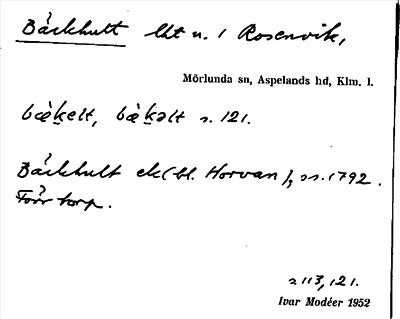 Bäckhult lht u. / Rosenvik,
Mörlunda sn, Aspelands hd, Klm. l.
bæ̀k̬elt, bæ̀k̬əlt s. 121.
Bäckhult ek(bl. Horvan), ss. 1792.
Förr torp.
s 113, 121.
Ivar Modéer 1952